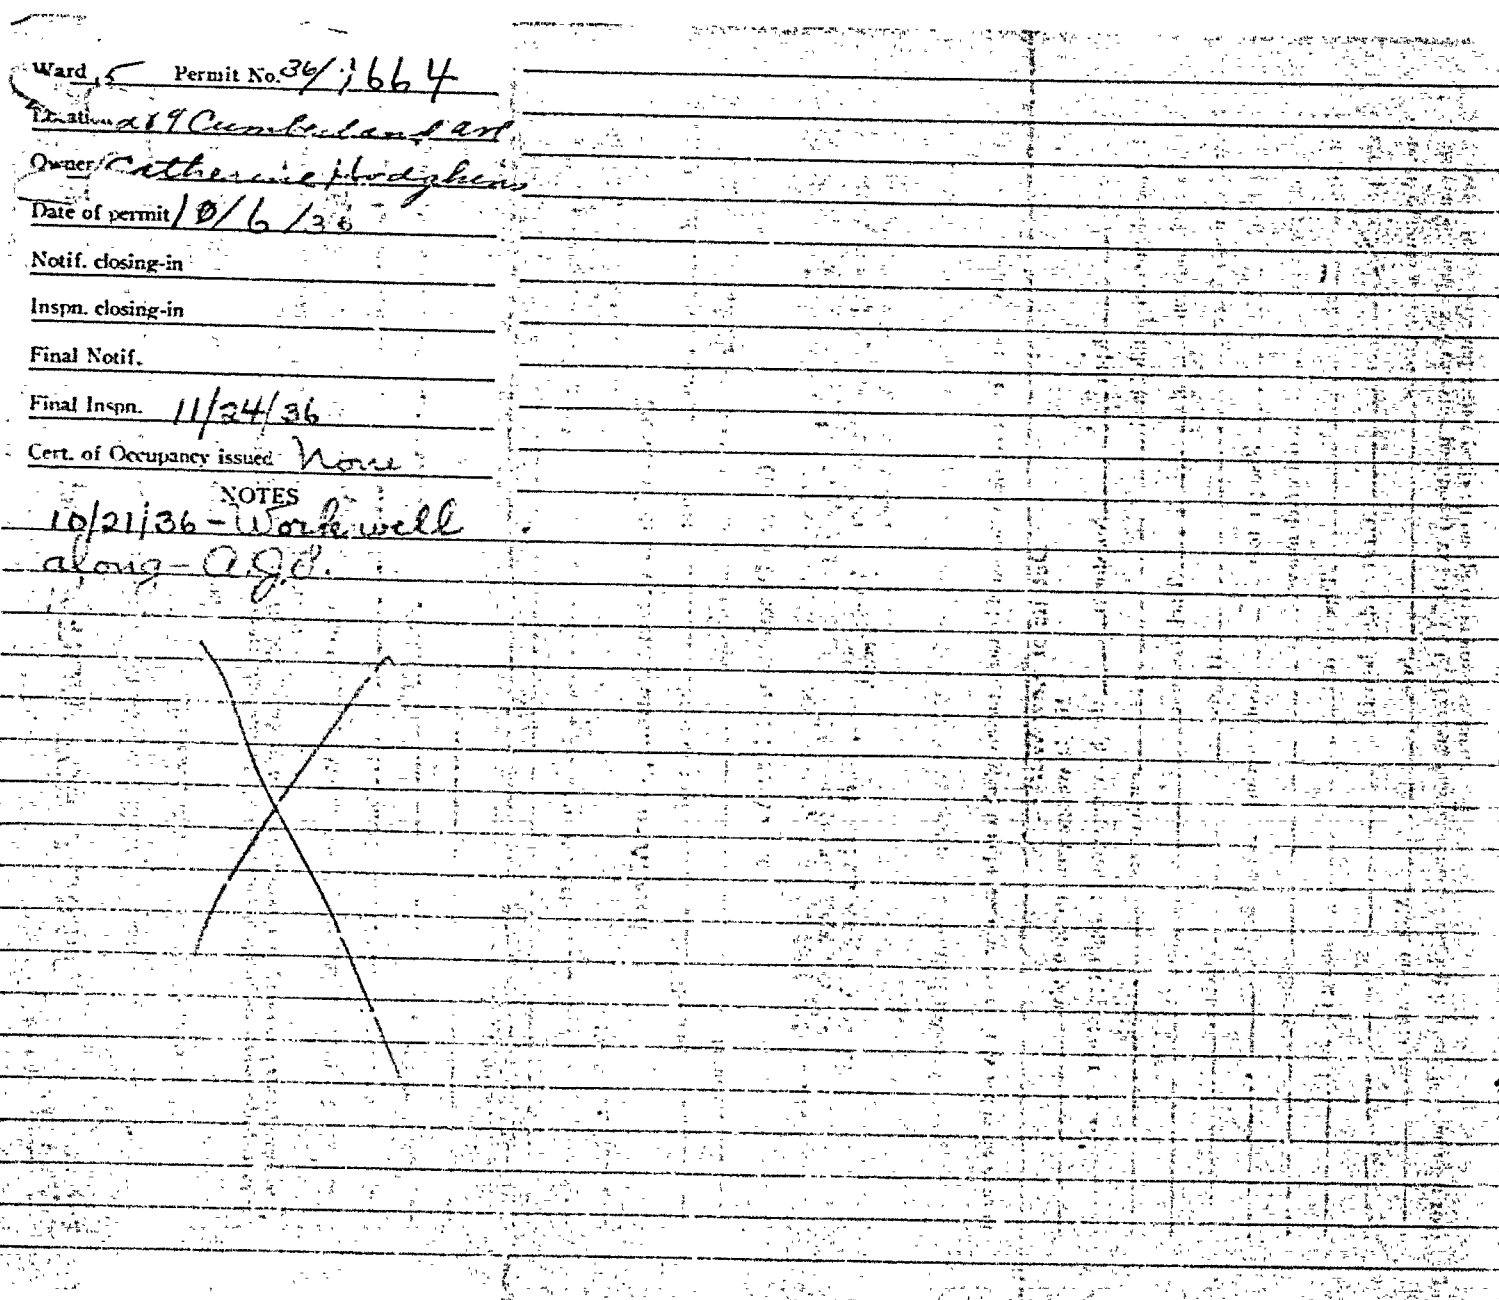 Ward 5 Permit No. 36/1664
Location 289 Cumberland Ave.
Owner Catherine Hodgkins
Date of permit 10/6/36
Notif. closing-in
Inspn. closing-in
Final Notif.
Final Inspn. 11/24/36
Cert. of Occupancy issued None
NOTES
10/21/36 - Work well
along - A.J.S.